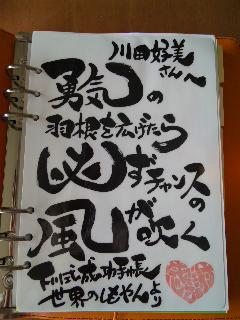 川田好美
さんへ
勇気の
羽根を広げたら
必ずチャンスの
風が吹く
下川式成功手帳
世界のしもやんより